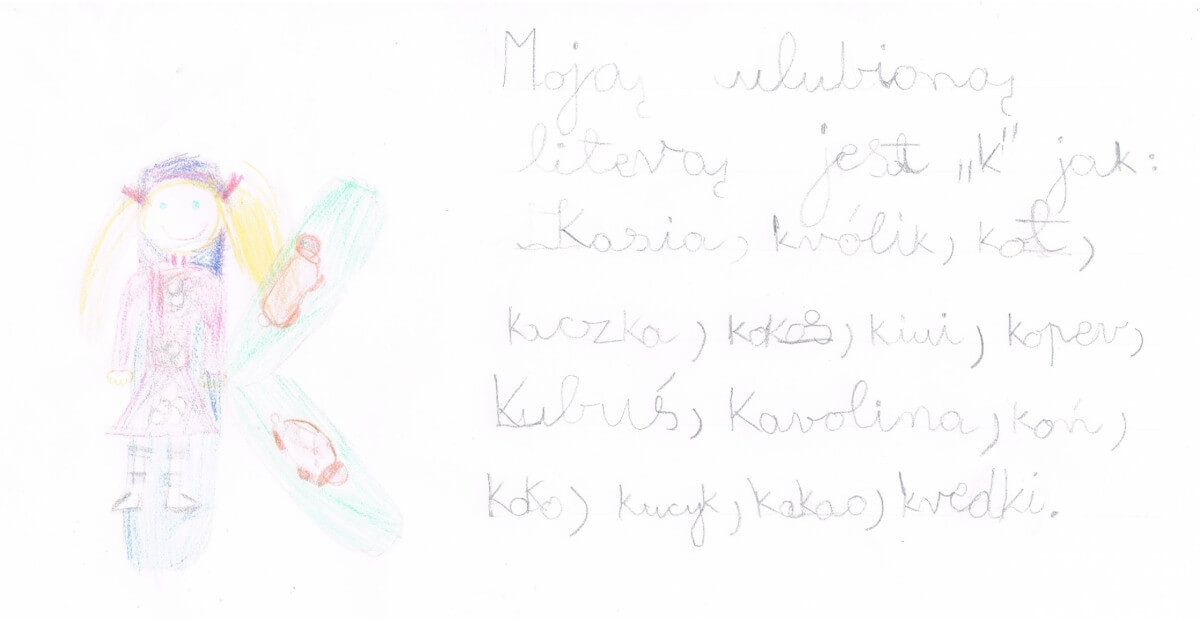 Moją ulubioną
literą jest „k" jak:
Kasia, królik, kot,
kaczka, kokos, kiwi, koper,
Kubuś, Karolina, koń,
koło, kucyk, kakao, kredki.